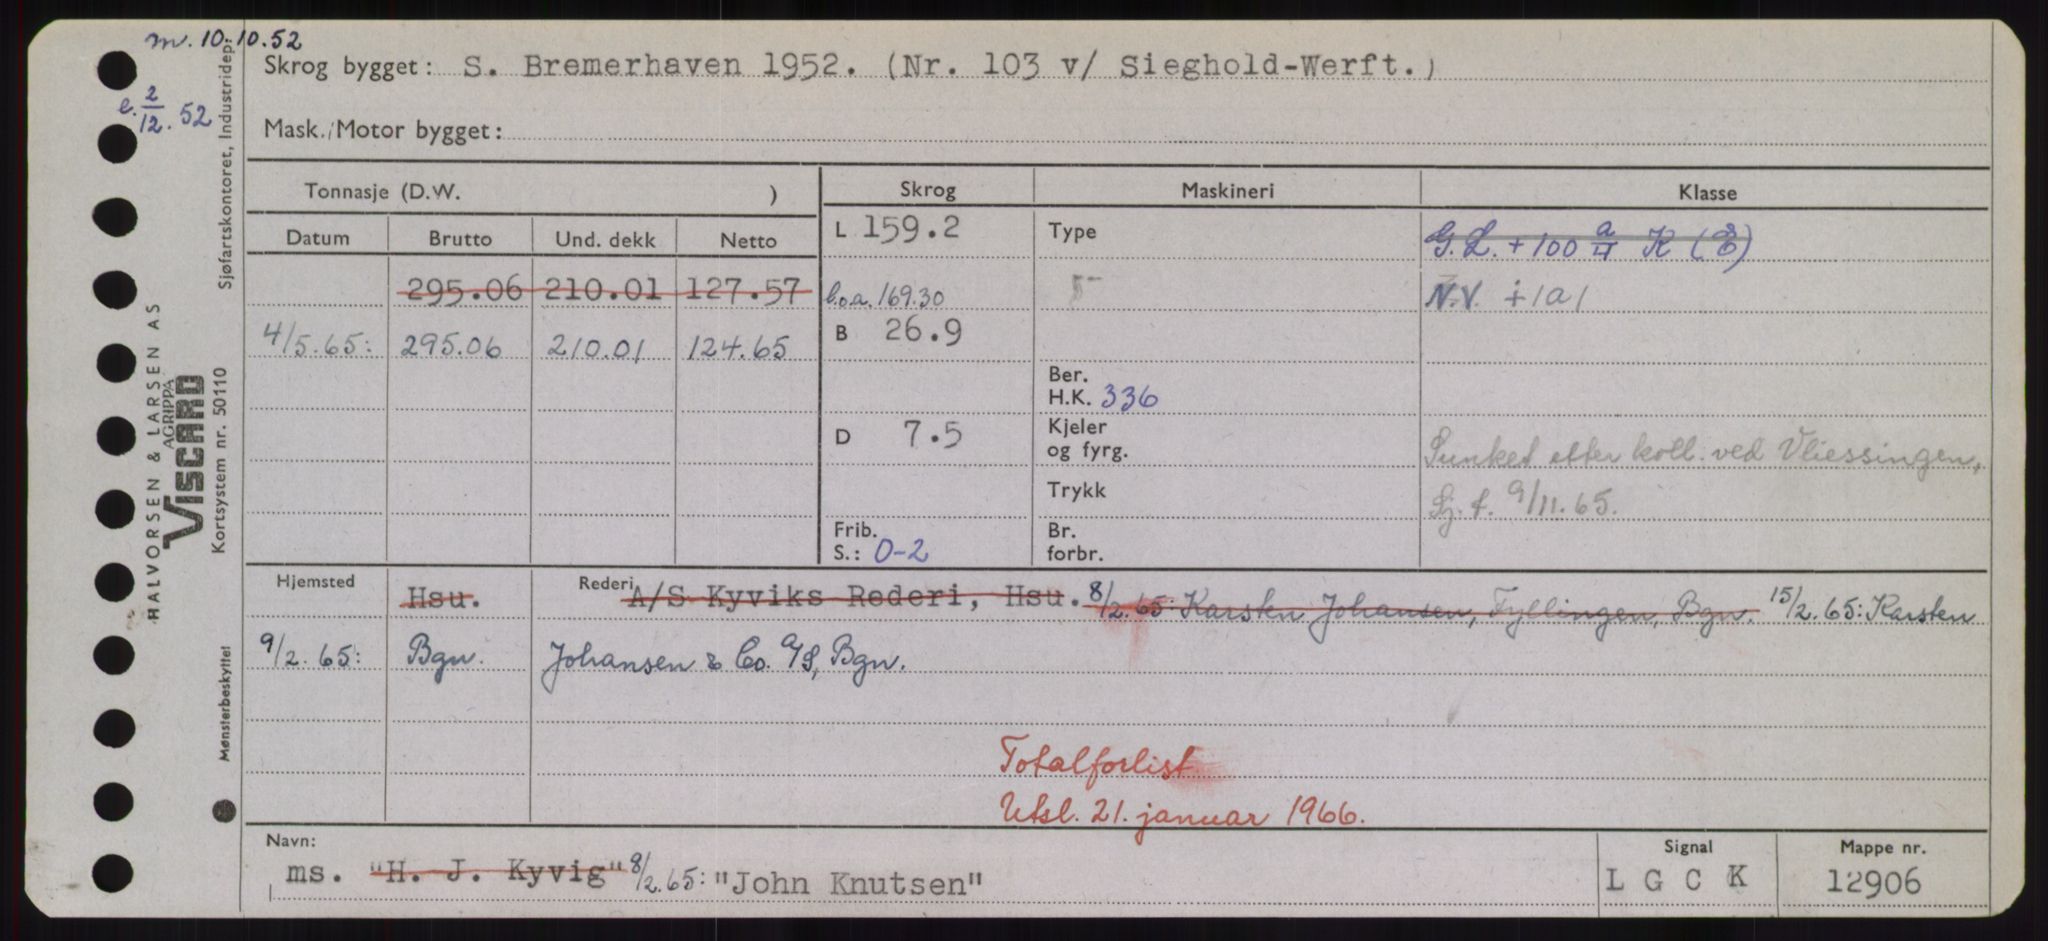 m. 10.10.52
e. 2/12. 52
Skrog bygget: S. Bremerhaven 1952. (Nr. 103 v/ Sieghold-Werft.)
Mask./Motor bygget:
Tonnasje (D.W. )
Skrog
Maskineri
Klasse
Datum Brutto Und. dekk Netto
L 159.2
Type
G.L. + 100 a/4 K (E)
295.06 210.01 127.57
l.o.a. 169.30
N.V. +1A1
4/5.65: 295.06 210.01 124.65
B 26.9
Ber.
H.K. 336
D 7.5
Kjeler
og fyrg.
Sunket etter koll. ved Vliessingen,
Trykk
Sj.f. 9/11.65.
Frib.
S.: 0-2
Br.
forbr.
Hjemsted Hsu. Rederi A/S Kyviks Rederi, Hsu. 8/2.65: Karsten Johansen, Fyllingen, Bgn. 15/2.65: Karsten
9/2.65: Bgn. Johansen & Co. A/S, Bgn.
Totalforlist
Utsl. 21. januar 1966.
Navn:
ms. "H. J. Kyvig" 8/2.65: "John Knutsen"
Signal
L G C K
Mappe nr.
12906
Sjøfartskontoret, Industridep.
HALVORSEN & LARSEN AS
AGRIPPA
VISCARD
Kortsystem nr. 50110
Mønsterbeskyttet